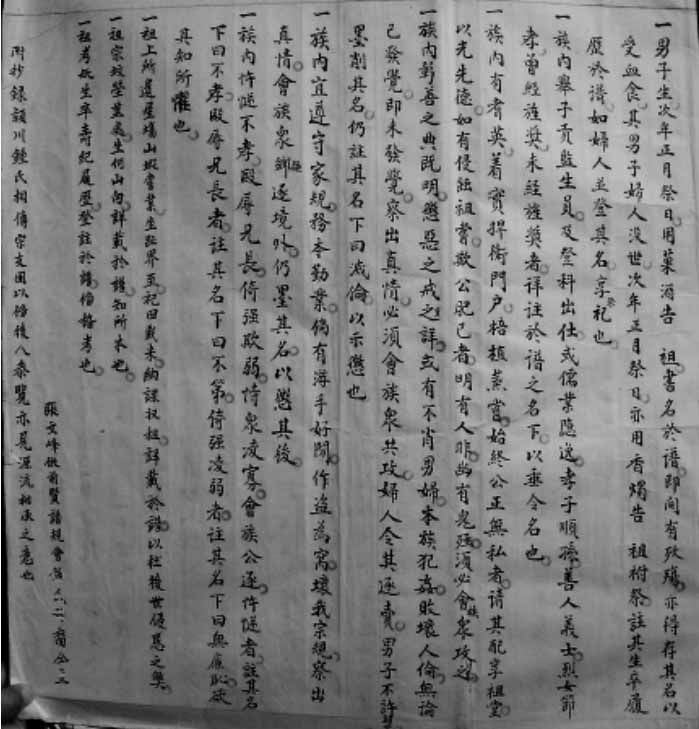 一男子生次年正月祭日用菓酒告　祖書名於譜即間有殀殤亦得存其名以
受血食其男子婦人沒世次年正月祭日亦用香燭告　祖祔祭註其生卒履
歷於譜如婦人並登其名享祭祀也
一族內舉子貢監生員及登科出仕或儒業隱逸孝子順孫善人義士烈女節
孝曾經旌獎未經旌獎者祥註於譜之名下以垂令名也
一族內有耆英着實捍衛門户培植蒸嘗始終公正無私者請其配享祖堂
以光先德如有侵蝕祖嘗欺公肥已者明有人非幽有鬼殛須必會族衆攻之
一族內彰善之典既明懲惡之戒之詳或有不肖男婦本族犯姦敗壞人倫無論
已發覺即未發覺察出真情必須會族衆共攻婦人令其逐賣男子不許
墨削其名仍註其名下曰滅倫以示懲也
一族內宜遵守家規務本勤業倘有游手好閒作盜為窩壞我宗規察出
真情會族衆鄉逐境外仍墨其名以懲其後
一族內忤逆不孝毆辱兄長倚强欺弱恃衆凌寡會族公逐忤逆者註其名
下曰不孝毆辱兄長者註其名下曰不第倚强凌弱者註其名下曰無廉恥欲
其知所懼也
一祖上所遺屋場山塅嘗業坐趾界至祀田載米納課収租詳載於譜以杜後世侵慝之奠
一祖宗坟塋葬處坐何山向詳載於譜知所本也
一祖考妣生卒壽紀履歷登註於譜偹稽考也
張文峰做前賢譜規會
附抄錄頴川鍾氏相傳宗支图以偹後人叅覽亦見源流相承之意也